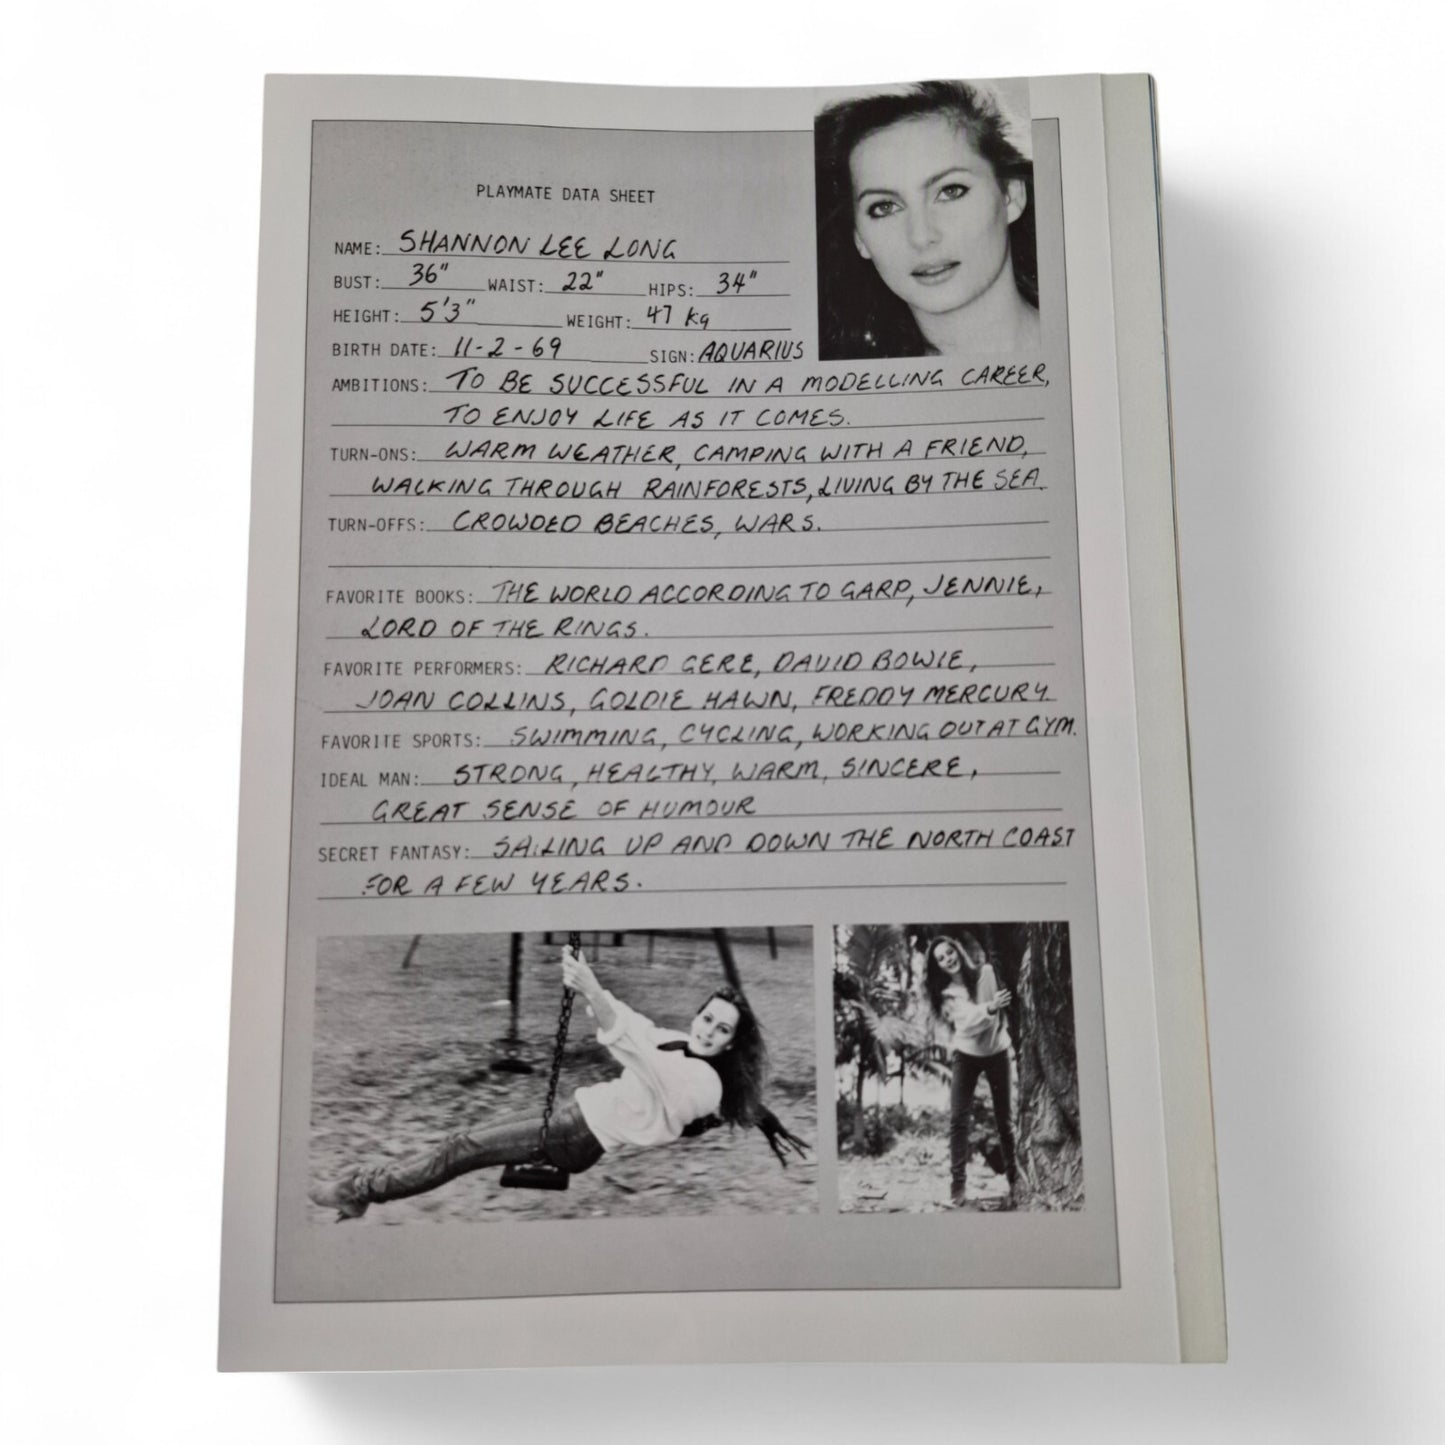 PLAYMATE DATA SHEET
NAME: SHANNON LEE LONG
BUST: 36" WAIST: 22" HIPS: 34"
HEIGHT: 5'3" WEIGHT: 47 Kg
BIRTH DATE: 11-2-69 SIGN: AQUARIUS
AMBITIONS: TO BE SUCCESSFUL IN A MODELLING CAREER,
TO ENJOY LIFE AS IT COMES.
TURN-ONS: WARM WEATHER, CAMPING WITH A FRIEND,
WALKING THROUGH RAINFORESTS, LIVING BY THE SEA.
TURN-OFFS: CROWDED BEACHES, WARS.
FAVORITE BOOKS: THE WORLD ACCORDING TO GARP, JENNIE,
LORD OF THE RINGS.
FAVORITE PERFORMERS: RICHARD GERE, DAVID BOWIE,
JOAN COLLINS, GOLDIE HAWN, FREDDY MERCURY.
FAVORITE SPORTS: SWIMMING, CYCLING, WORKING OUT AT GYM.
IDEAL MAN: STRONG, HEALTHY, WARM, SINCERE,
GREAT SENSE OF HUMOUR
SECRET FANTASY: SAILING UP AND DOWN THE NORTH COAST
FOR A FEW YEARS.